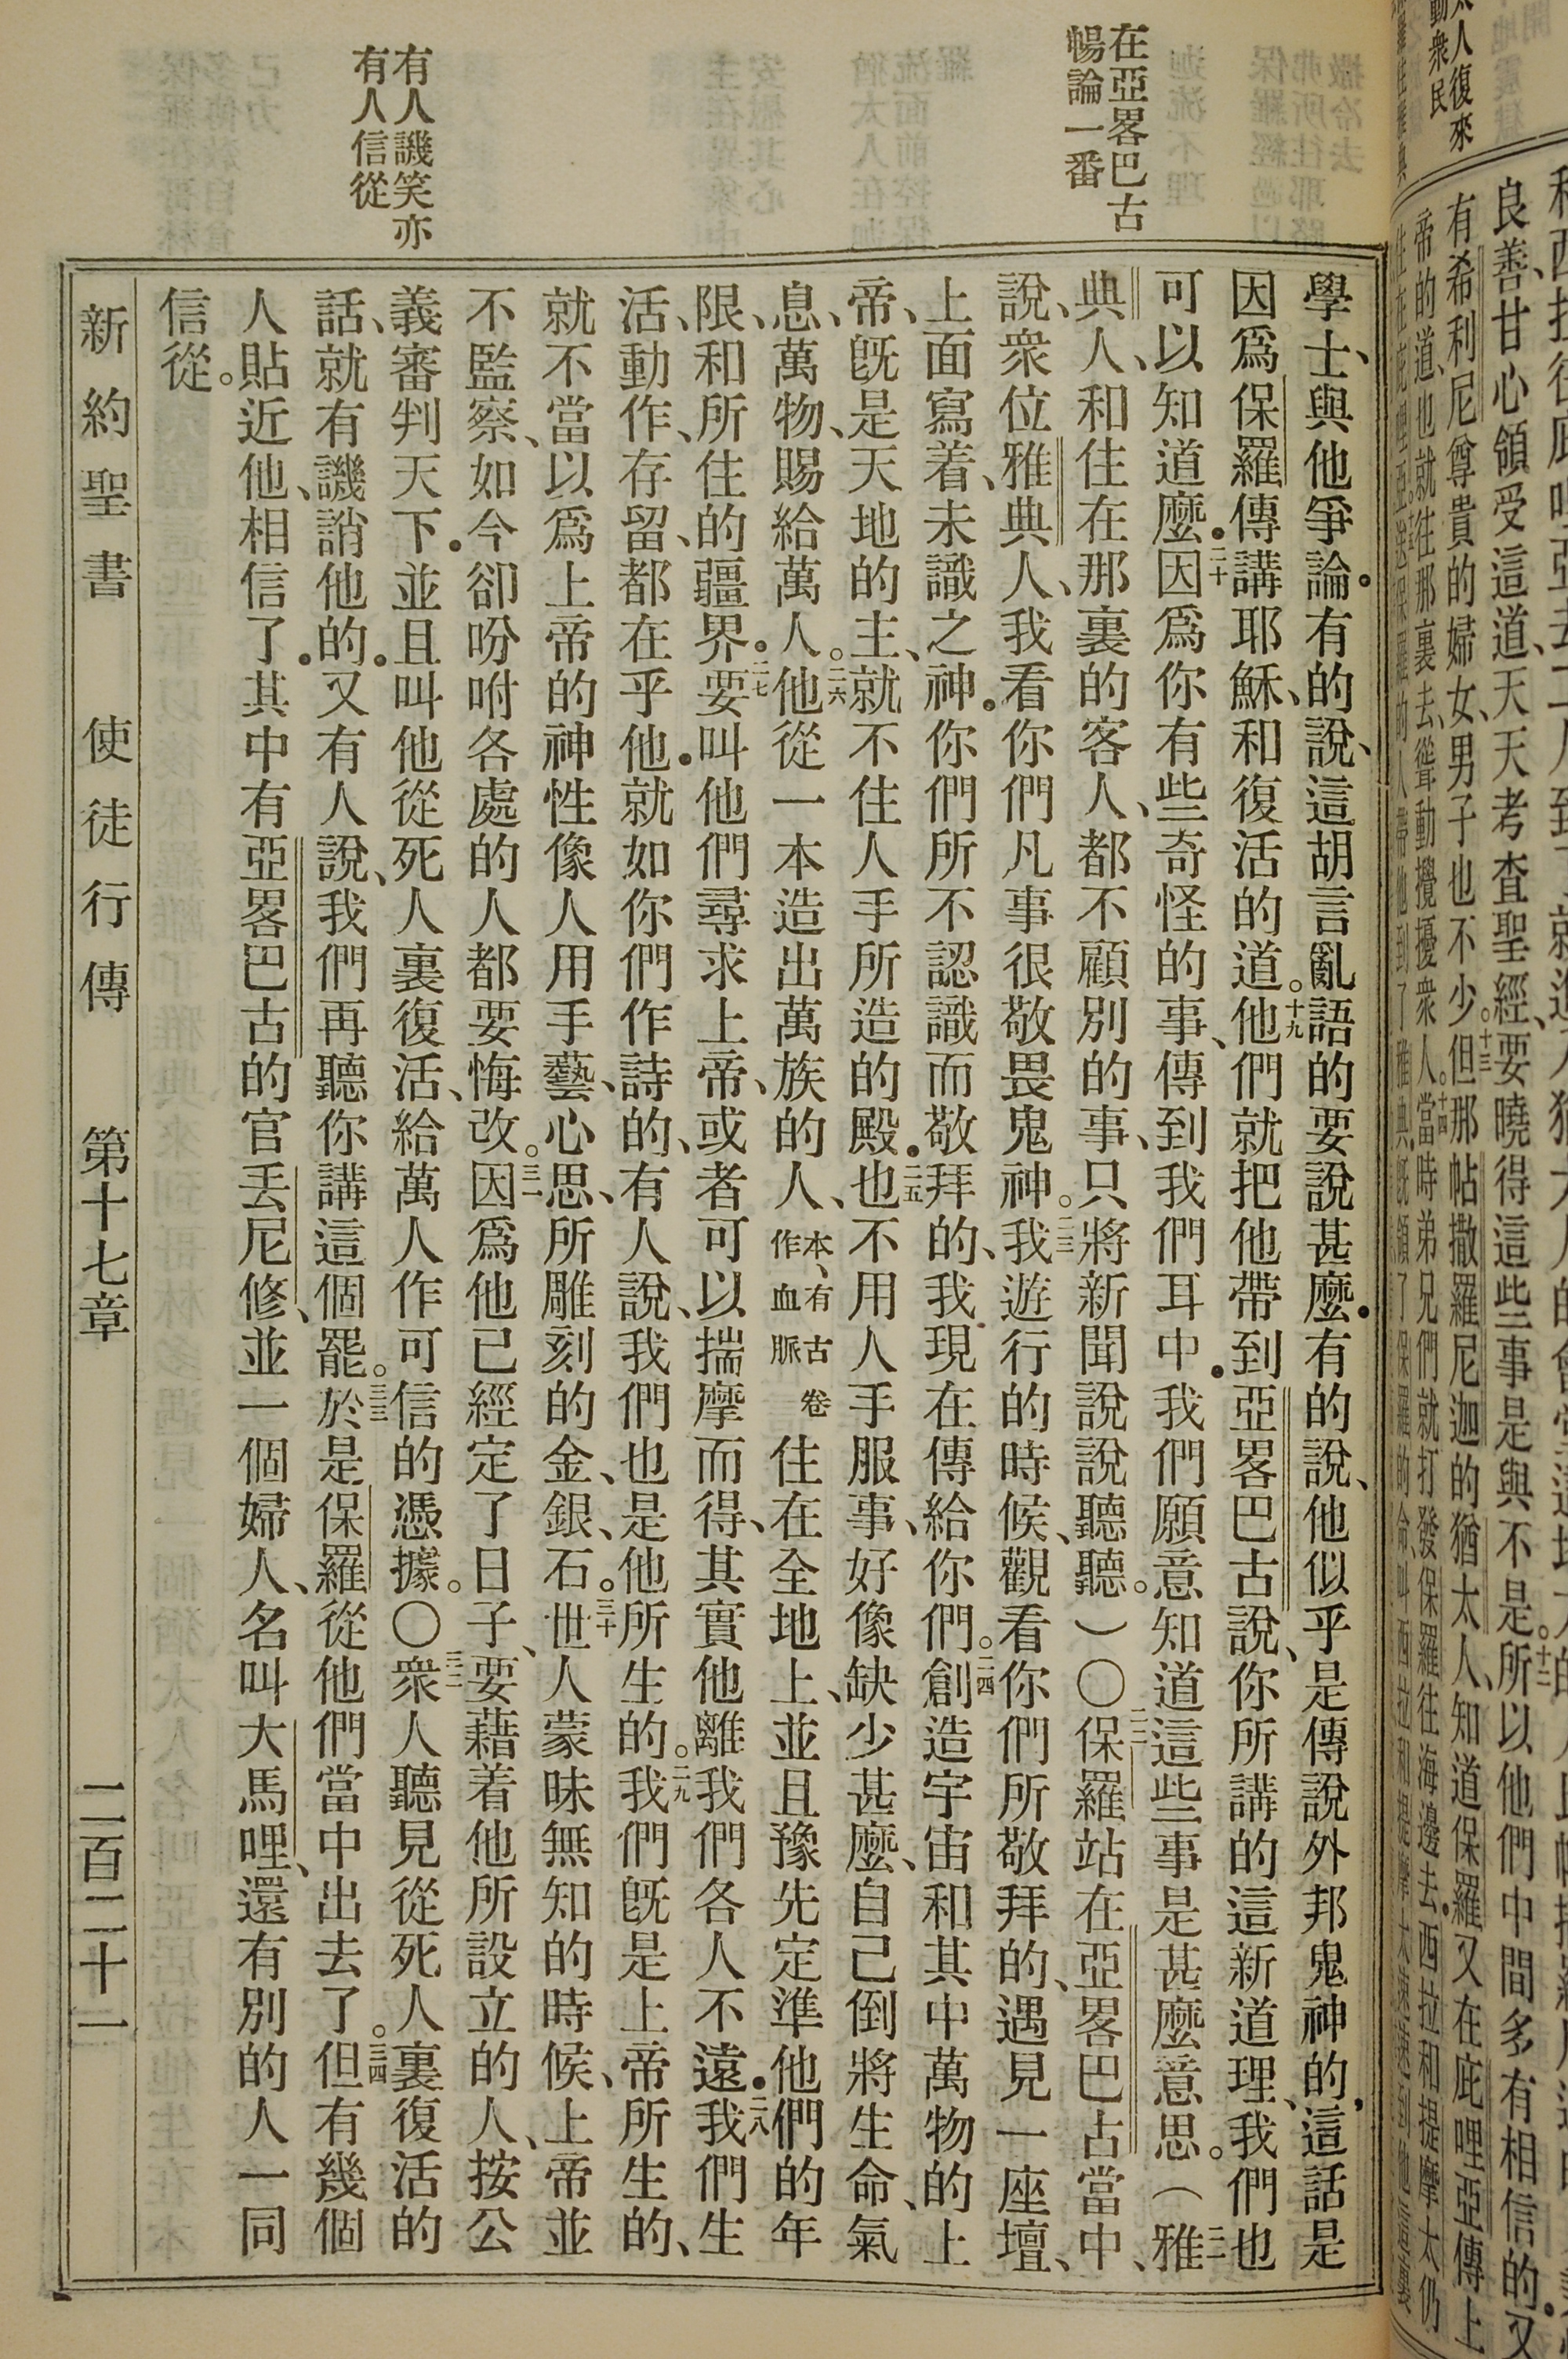 在亞畧巴古
暢論一番
有人譏笑亦
有人信從
學士、與他爭論．有的說、這胡言亂語的要說甚麼．有的說、他似乎是傳說外邦鬼神的、這話是
因爲保羅傳講耶穌、和復活的道。十九他們就把他帶到亞畧巴古說、你所講的這新道理、我們也
可以知道麼．二十因爲你有些奇怪的事、傳到我們耳中．我們願意知道這些事是甚麼意思。（二一雅
典人、和住在那裏的客人、都不顧別的事、只將新聞說說聽聽。）〇二二保羅站在亞畧巴古當中、
說、衆位雅典人、我看你們凡事很敬畏鬼神。二三我遊行的時候、觀看你們所敬拜的、遇見一座壇、
上面寫着、未識之神．你們所不認識而敬拜的、我現在傳給你們。二四創造宇宙和其中萬物的上
帝、旣是天地的主、就不住人手所造的殿．二五也不用人手服事、好像缺少甚麼、自己倒將生命、氣
息、萬物、賜給萬人。二六他從一本造出萬族的人、本、有古卷作血脈住在全地上、並且豫先定準他們的年
限、和所住的疆界．二七要叫他們尋求上帝、或者可以揣摩而得、其實他離我們各人不遠．二八我們生
活、動作、存留、都在乎他．就如你們作詩的、有人說、我們也是他所生的。二九我們旣是上帝所生的、
就不當以爲上帝的神性像人用手藝、心思、所雕刻的金、銀、石。三十世人蒙昧無知的時候、上帝並
不監察、如今卻吩咐各處的人都要悔改。三一因爲他已經定了日子、要藉着他所設立的人、按公
義審判天下．並且叫他從死人裏復活、給萬人作可信的憑據。〇三二衆人聽見從死人裏復活的
話、就有譏誚他的．又有人說、我們再聽你講這個罷。三三於是保羅從他們當中出去了。三四但有幾個
人貼近他、相信了．其中有亞畧巴古的官丟尼修、並一個婦人、名叫大馬哩、還有別的人一同
信從。
新約聖書 使徒行傳 第十七章 二百二十一
太人復來
動衆民
良善、甘心領受這道、天天考查聖經、要曉得這些事是與不是。十二所以他們中間多有相信的．又
有希利尼尊貴的婦女、男子也不少。十三但那帖撒羅尼迦的猶太人、知道保羅又在庇哩亞傳上
帝的道、也就往那裏去、聳動攪擾衆人。十四當時弟兄們就打發保羅往海邊去．西拉和提摩太仍